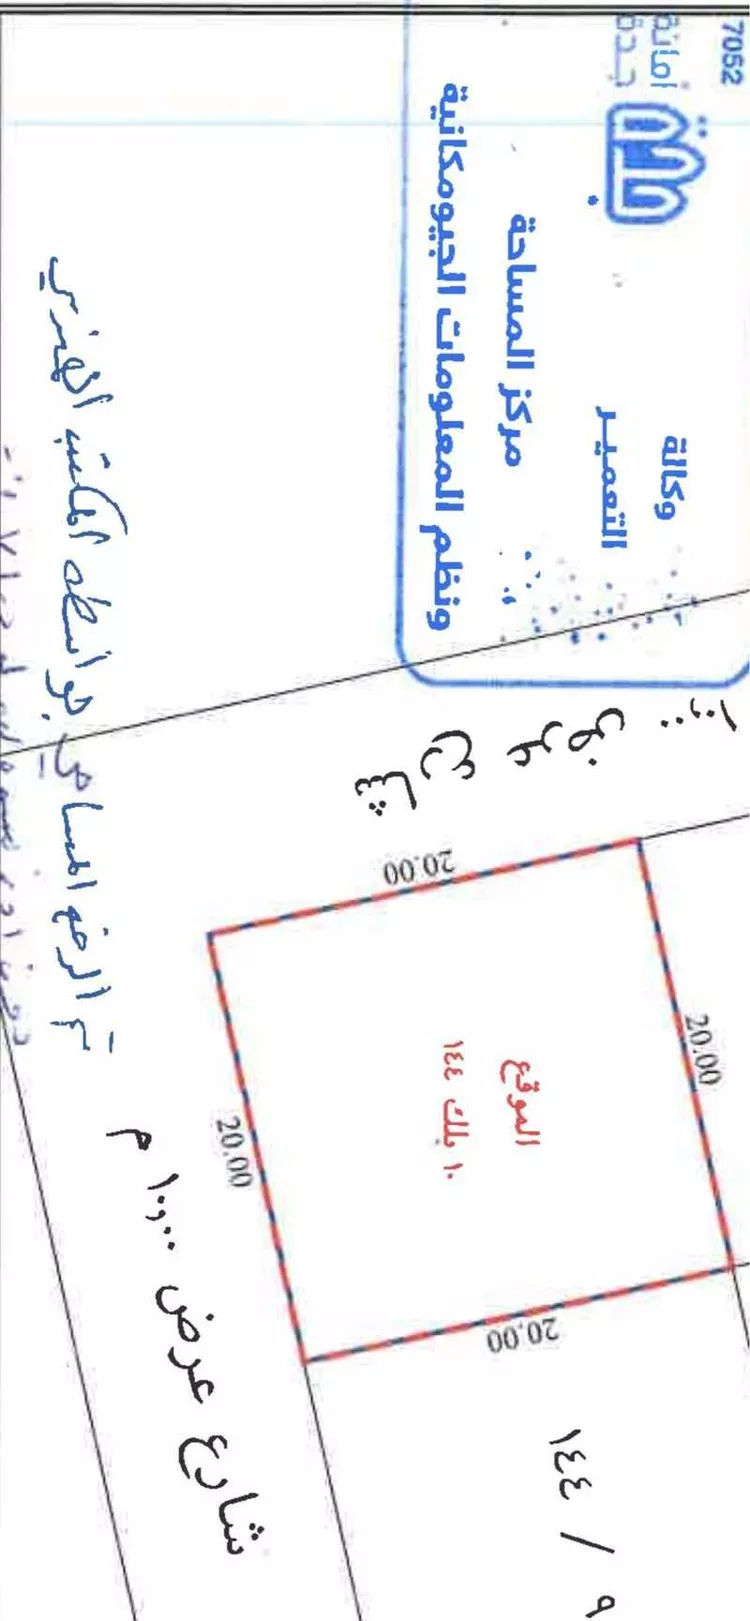 7052
أمانة
جدة
جدة
وكالة
التعمير
مركز المساحة
ونظم المعلومات الجيومكانية
تم الرفع المساحي بواسطه المكتب الهندسي
شارع عرض ١٠,٠٠
20.00
20.00
الموقع
١٠ بلك ١٤٤
20.00
20.00
شارع عرض ١٠,٠٠ م
٩ / ١٤٤